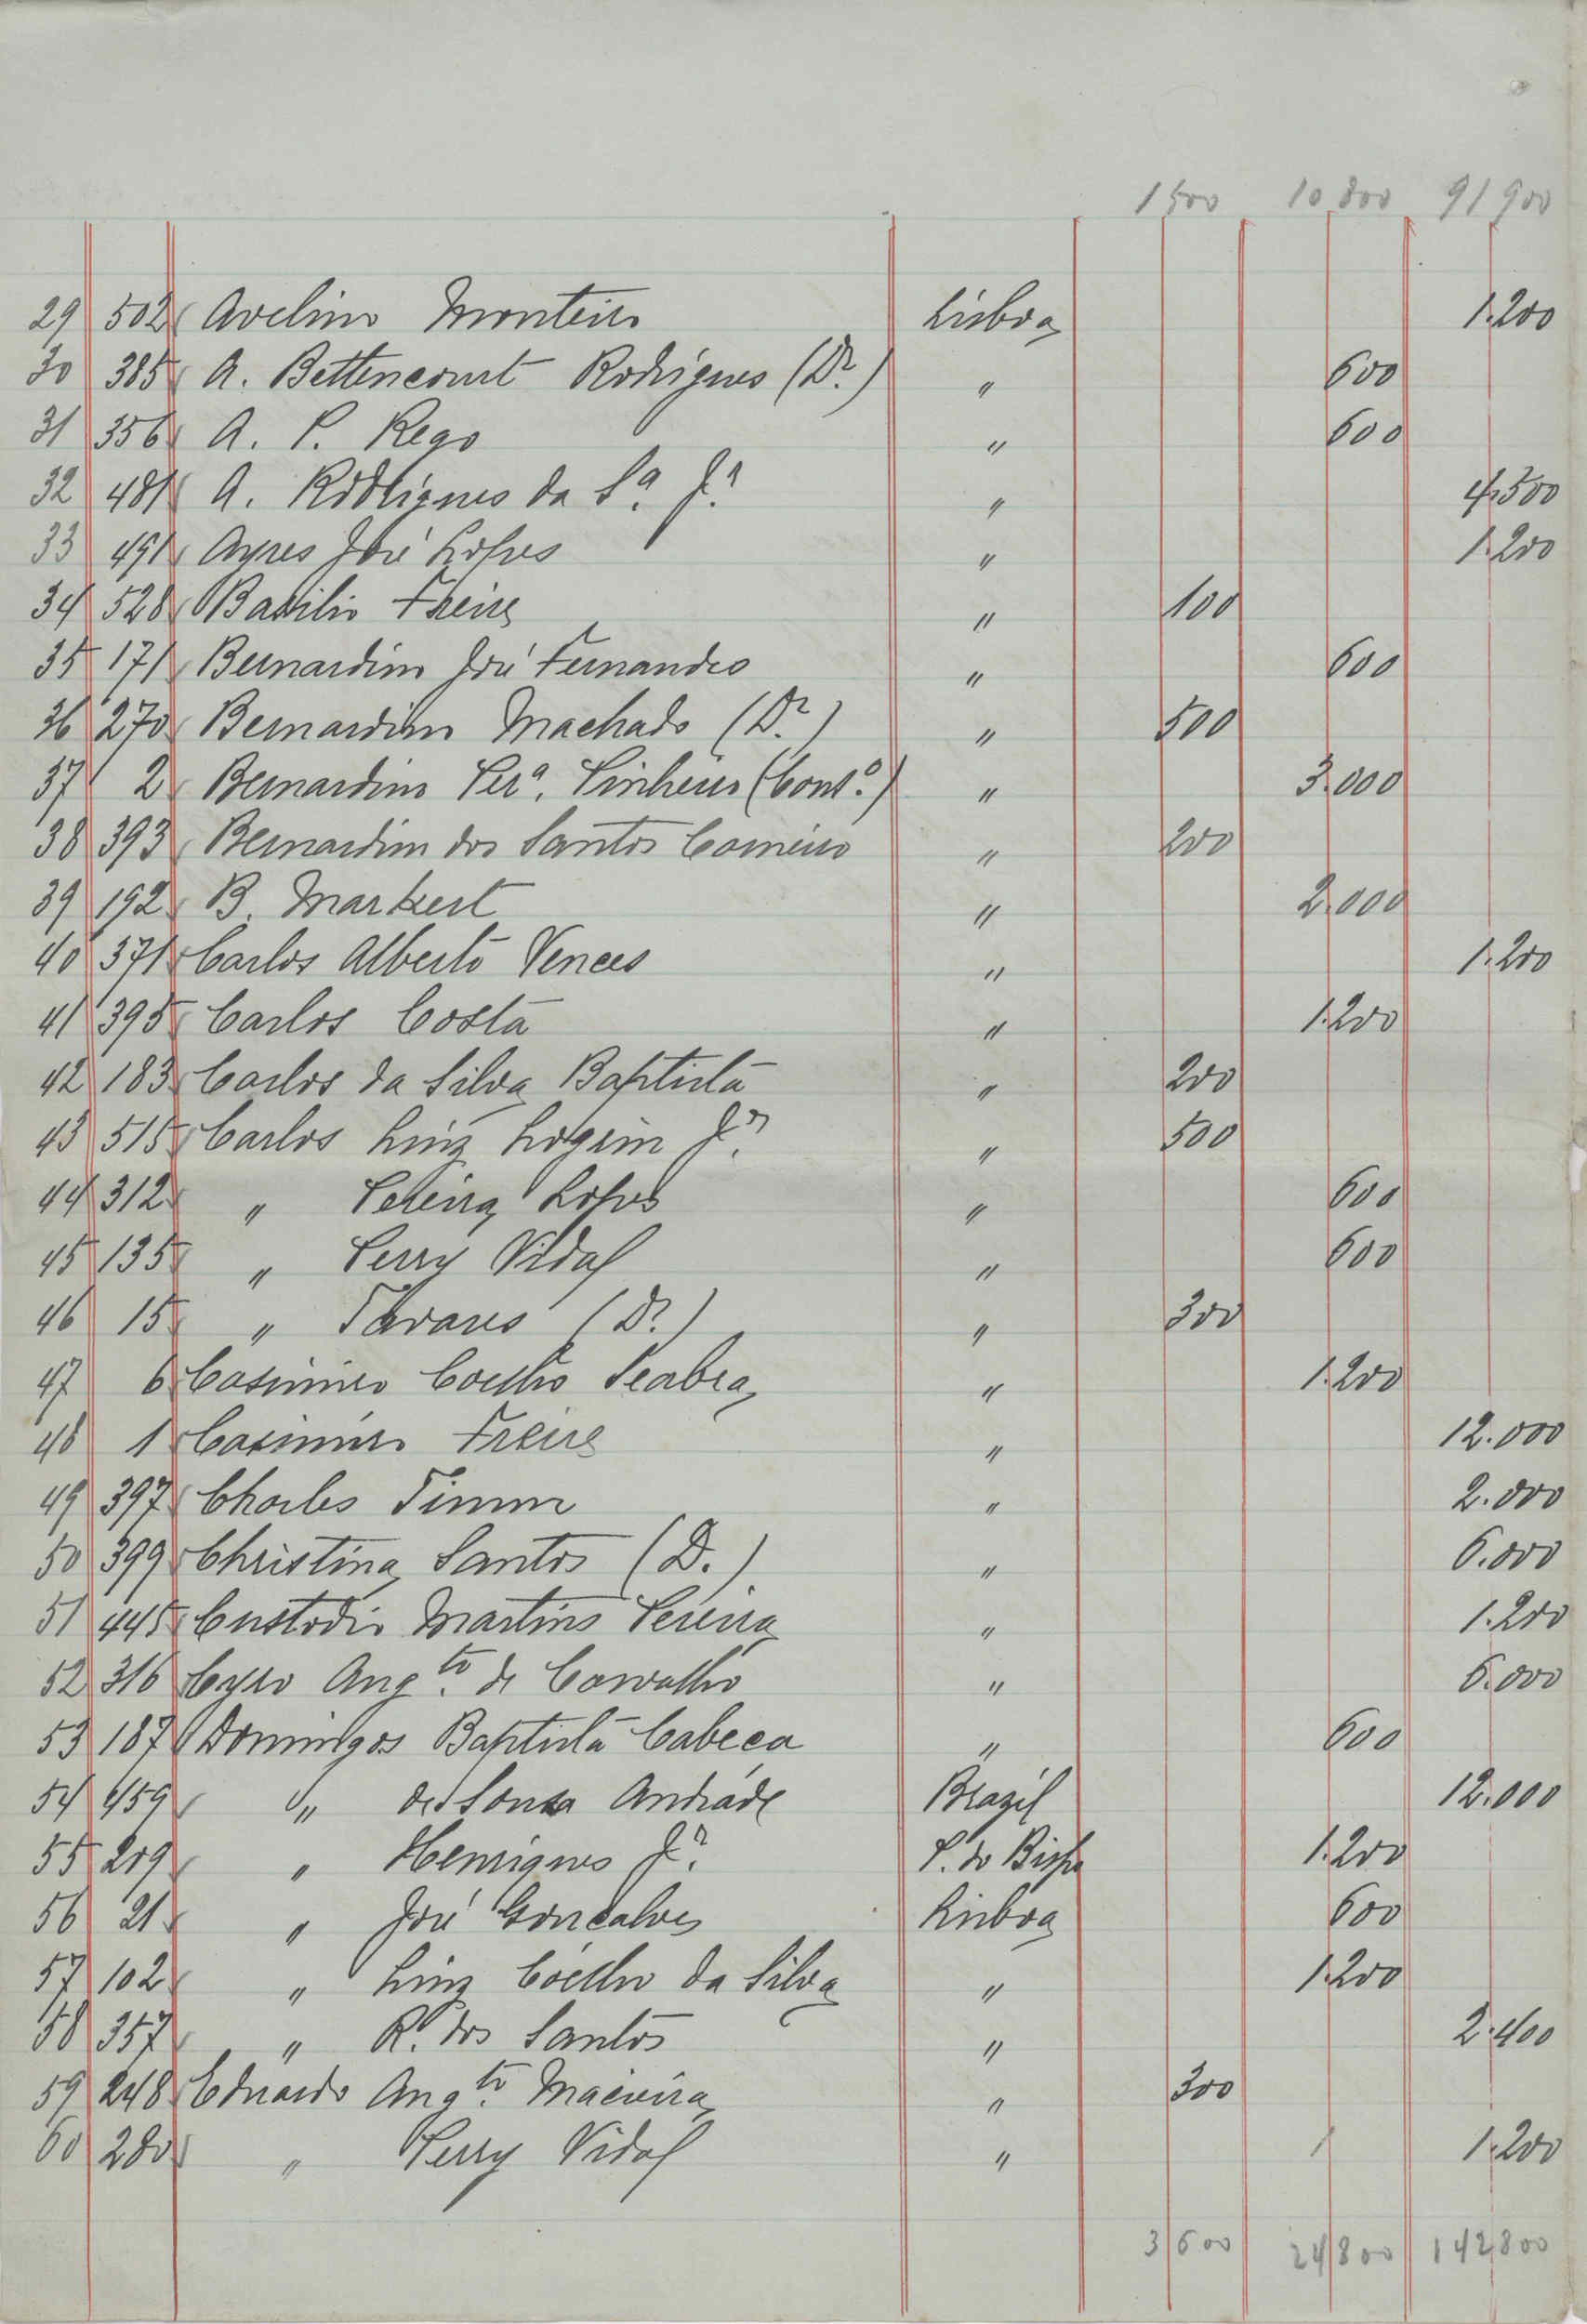 1500 10800 91900
29 502 Avelino Monteiro Lisboa 1.200
30 385 A. Bettencourt Rodrigues (Dr.) " 600
31 356 A. P. Rego " 600
32 481 A. Rodrigues da Sa. Jr. " 4.500
33 491 Ayres José Lopes " 1.200
34 528 Basilio Freire " 100
35 171 Bernardino José Fernandes " 600
36 270 Bernardino Machado (Dr.) " 500
37 2 Bernardino Pera. Pinheiro (Conso.) " 3.000
38 393 Bernardino dos Santos Carneiro " 200
39 192 B. Markert " 2.000
40 371 Carlos Alberto Vences " 1.200
41 395 Carlos Costa " 1.200
42 183 Carlos da Silva Baptista " 200
43 515 Carlos Luiz Jr. " 500
44 312 " Pereira Lopes " 600
45 135 " Perry Vidal " 600
46 15 " Tavares (Dr.) " 300
47 6 Casimiro Coelho Seabra " 1.200
48 1 Casimiro Freire " 12.000
49 397 Charles Timm " 2.000
50 399 Christina Santos (D.) " 6.000
51 445 Custodio Martins Pereira " 1.200
52 316 Cyro Augto. de Carvalho " 6.000
53 187 Domingos Baptista Cabeça " 600
54 459 " de Sousa Andrade Brazil 12.000
55 209 " Henriques Jr. P. do Bispo 1.200
56 21 " José Gonçalves Lisboa 600
57 102 " Luiz Coelho da Silva " 1.200
58 357 " R. dos Santos " 2.400
59 248 Eduardo Augto. Macieira " 300
60 280 " Perry Vidal " 1.200
3600 24800 142800